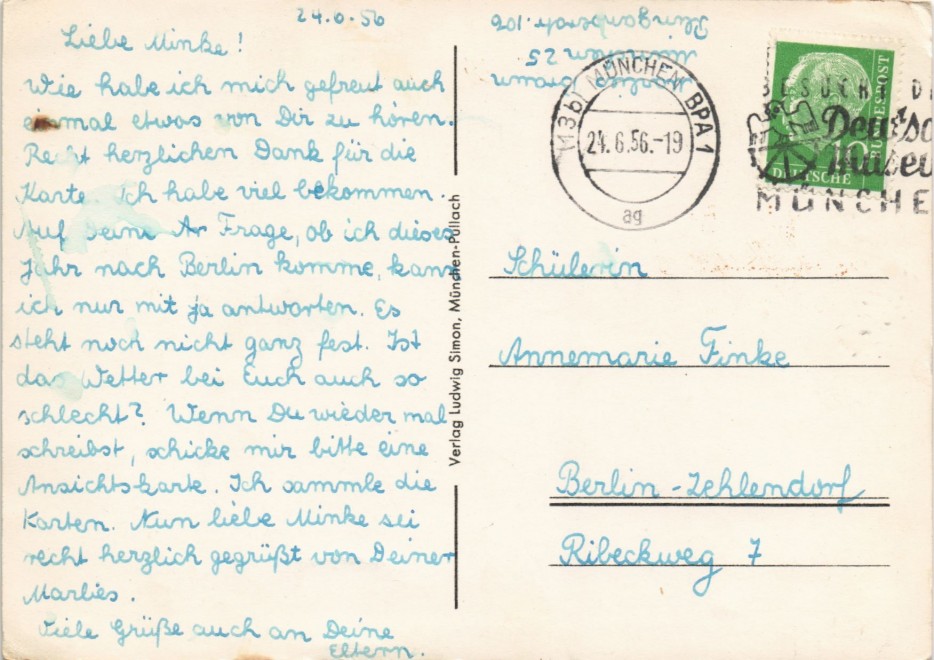 24.6.56
Liebe Minke!
Wie habe ich mich gefreut auch
einmal etwas von Dir zu hören.
Recht herzlichen Dank für die
Karte. Ich habe viel bekommen.
Auf Deine Ar Frage, ob ich dieses
Jahr nach Berlin komme, kann
ich nur mit ja antworten. Es
steht noch nicht ganz fest. Ist
das Wetter bei Euch auch so
schlecht? Wenn Du wieder mal
schreibst, schicke mir bitte eine
Ansichtskarte. Ich sammle die
Karten. Nun liebe Minke sei
recht herzlich gegrüßt von Deiner
Marlies.
Viele Grüße auch an Deine
Eltern.
Verlag Ludwig Simon, München-Pullach
München 25
(13b) MÜNCHEN BPA 1
24.6.56.-19
ag
BESUCHT D
Deutsc
Museu
MÜNCHE
DEUTSCHE BUNDESPOST
10
Schülerin
Annemarie Finke
Berlin-Zehlendorf
Ribeckweg 7